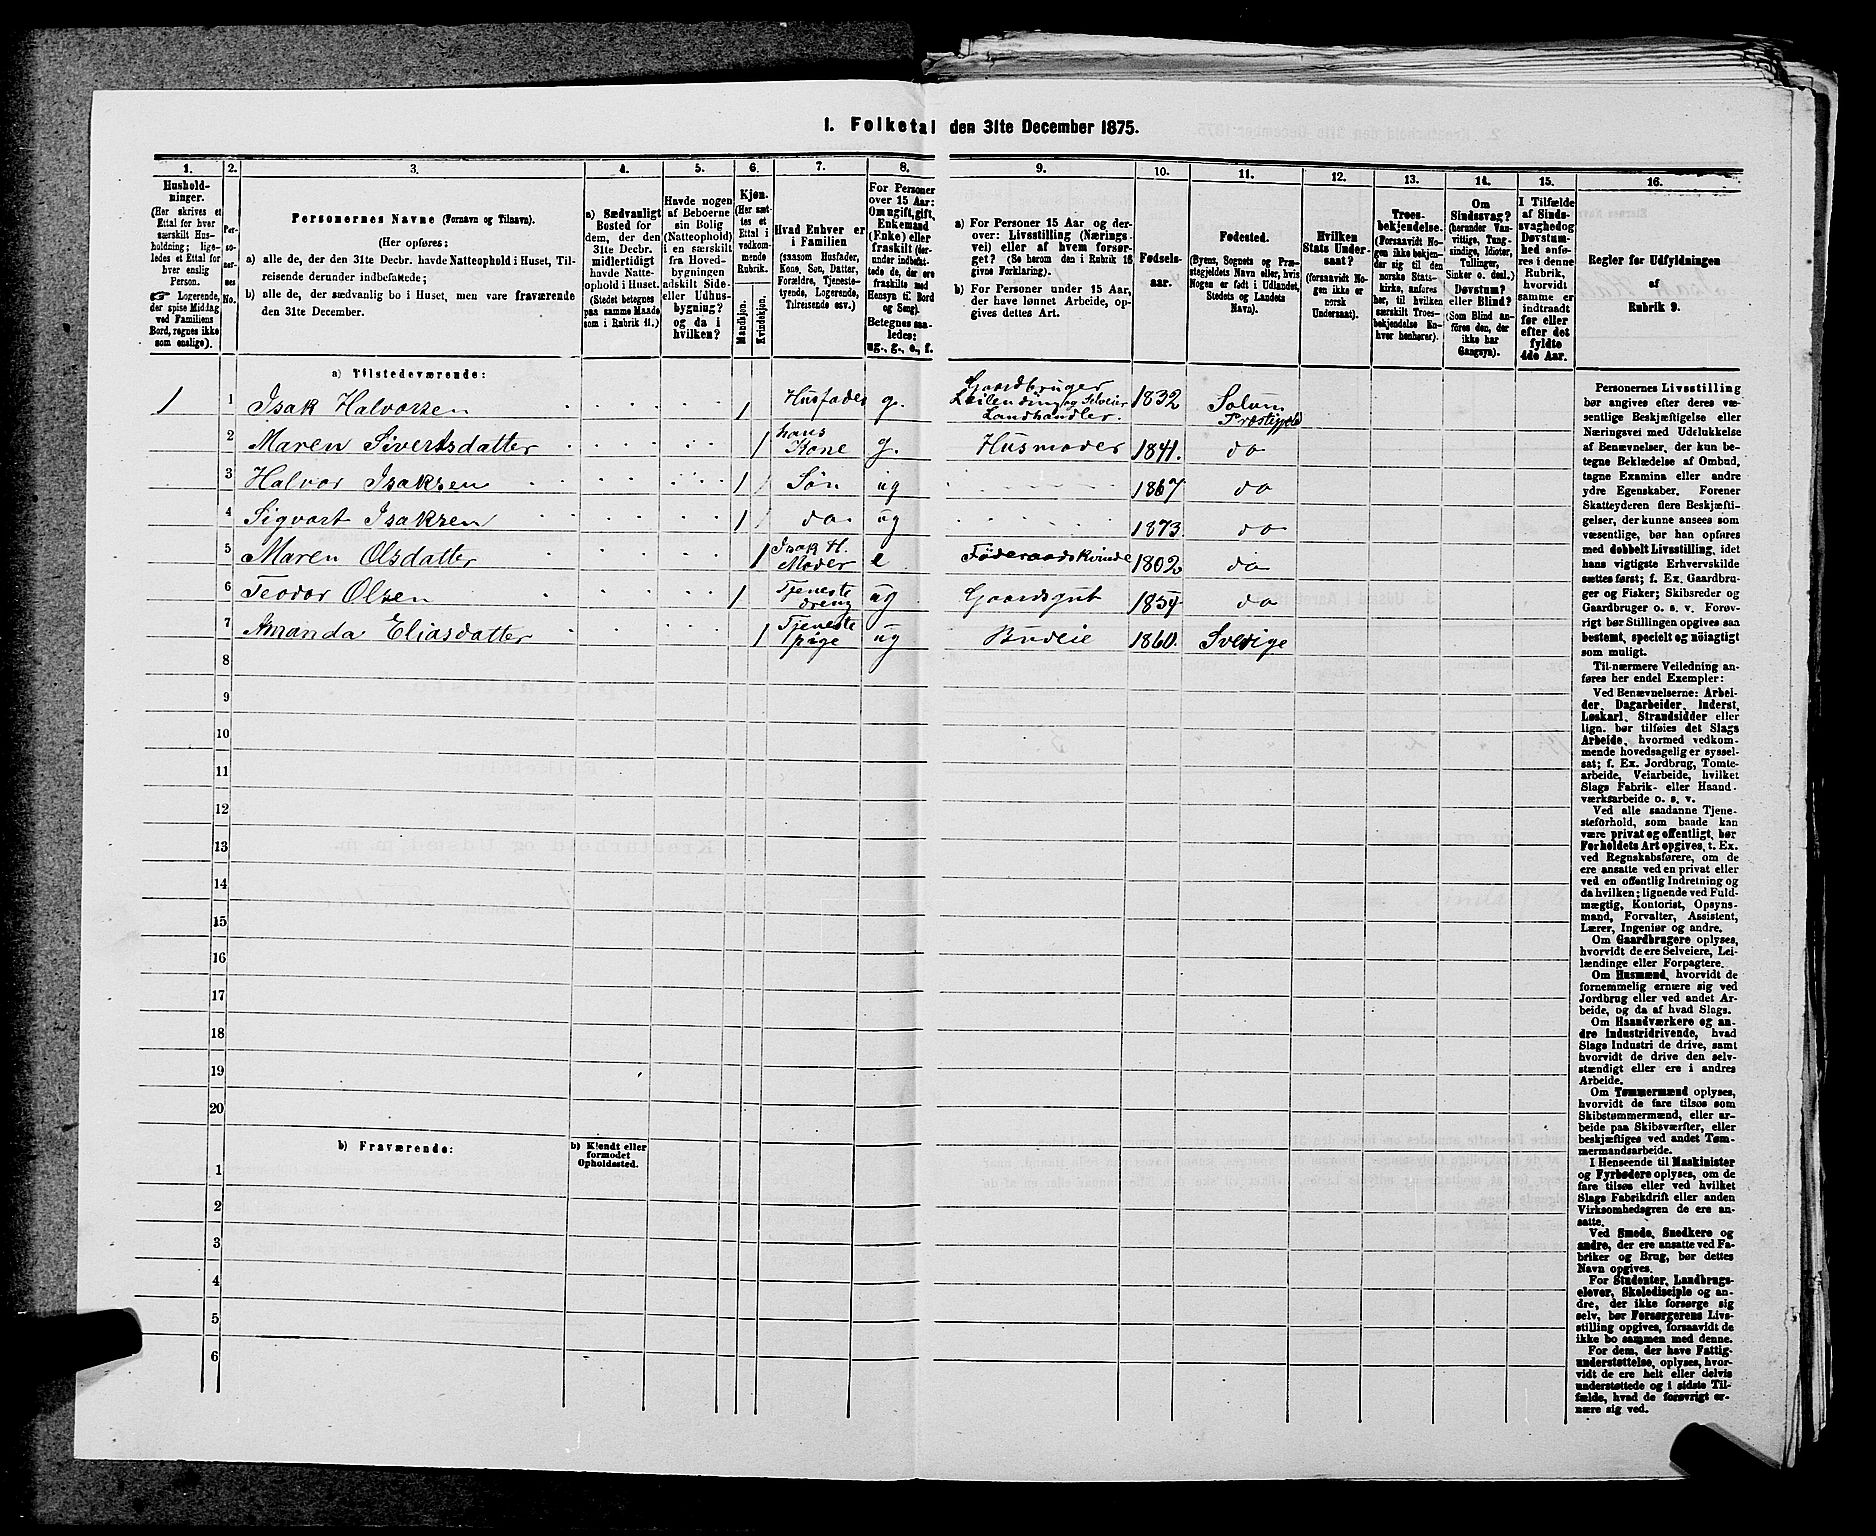 1. Folketal den 31te December 1875.
1. 2. 3. 4. 5. 6. 7. 8. 9. 10. 11. 12. 13. 14. 15. 16.
Hushold-
ninger.
(Her skrives et
Ettal for hver
særskilt Hus-
holdning; lige-
ledes et Ettal for
hver enslig
Person.
☞ Logerende,
der spise Middag
ved Familiens
Bord, regnes ikke
som enslige).
Per-
so-
ner-
nes
No.
Personernes Navne (Fornavn og Tilnavn).
(Her opføres:
a) alle de, der den 31te Decbr. havde Natteophold i Huset, Til-
reisende derunder indbefattede;
b) alle de, der sædvanlig bo i Huset, men vare fraværende
den 31te December.
a) Sædvanligt
Bosted for
dem, der den
31te Decbr.
midlertidigt
havde Natte-
ophold i Huset.
(Stedet betegnes
paa samme Maade
som i Rubrik 11.)
Havde nogen
af Beboerne
sin Bolig
(Natteophold)
i en særskilt
fra Hoved-
bygningen
adskilt Side-
eller Udhus-
bygning?
og da i
hvilken?
Kjøn.
(Her sæt-
tes et
Ettal i
vedkom-
mende
Rubrik.
Mandkjøn.
Kvindekjøn.
Hvad Enhver er
i Familien
(saasom Husfader,
Kone, Søn, Datter,
Forældre, Tjeneste-
tyende, Logerende,
Tilreisende osv.)
For Personer
over 15 Aar:
Om ugift, gift,
Enkemand
(Enke) eller
fraskilt (der-
under indbefat-
tede de, der ere
fraskilte med
Hensyn til Bord
og Seng).
Betegnes saa-
ledes:
ug., g., e., f.
a) For Personer 15 Aar og der-
over: Livsstilling (Nærings-
vei) eller af hvem forsør-
get? (Se herom den i Rubrik 16
givne Forklaring).
b) For Personer under 15 Aar,
der have lønnet Arbeide, op-
gives dettes Art.
Fødsels-
aar.
Fødested.
(Byens, Sognets og Præ-
stegjeldets Navn eller, hvis
Nogen er født i Udlandet,
Stedets og Landets
Navn).
Hvilken
Stats Under-
saat?
(forsaavidt No-
gen ikke er
norsk
Undersaat).
Troes-
bekjendelse.
(Forsaavidt No-
gen ikke bekjen-
der sig til den
norske Stats-
kirke, anføres
her, til hvilken
særskilt Troes-
bekjendelse En-
hver henhører).
Om
Sindssvag?
(herunder Van-
vittige, Tung-
sindige, Idioter,
Tullinger,
Sinker o. desl.)
Døvstum?
eller Blind?
(Som Blind an-
føres den, der
ikke har
Gangsyn).
I Tilfælde
af Sinds-
svaghed og
Døvstum-
hed anfø-
res i denne
Rubrik,
hvorvidt
samme er
indtraadt
før eller
efter det
fyldte
4de Aar.
Regler for Udfyldningen
af
Rubrik 9.
a) Tilstedeværende:
1 1 Isak Halvorsen 1 Husfader g. Gaardbruger Leilending og Selveier Landhandler. 1832 Solum Præstigjeld
2 Maren Sivertsdatter 1 hans Kone g. Husmoder 1841. do
3 Halvor Isaksen 1 Søn ug 1867 do
4 Sigvart Isaksen 1 do ug 1873. do
5 Maren Olsdatter 1 Isak H. Moder e Føderaadskvinde 1802 do
6 Teodor Olsen 1 Tjeneste dreng ug Gaardsgut 1854 do
7 Amanda Eliasdatter 1 Tjeneste pige ug Budeie 1860. Sverige
8
9
10
11
12
13
14
15
16
17
18
19
20
b) Fraværende:
b) Kjendt eller
formodet
Opholdssted.
1
2
3
4
5
6
Personernes Livsstilling
bør angives efter deres væ-
sentlige Beskjæftigelse eller
Næringsvei med Udelukkelse
af Benævnelser, der kun be-
tegne Beklædelse af Ombud,
tagne Examina eller andre
ydre Egenskaber. Forener
Skatteyderen flere Beskjæfti-
gelser, der kunne ansees som
væsentlige, bør han opføres
med dobbelt Livsstilling, idet
hans vigtigste Erhvervskilde
sættes først; f. Ex. Gaardbru-
ger og Fisker; Skibsreder og
Gaardbruger o. s. v. Forøv-
rigt bør Stillingen opgives saa
bestemt, specielt og nøiagtigt
som muligt.
Til nærmere Veiledning an-
føres her endel Exempler:
Ved Benævnelserne: Arbei-
der, Dagarbeider, Inderst,
Løskarl, Strandsidder eller
lign. bør tilføies det Slags
Arbeide, hvormed vedkom-
mende hovedsagelig er syssel-
sat; f. Ex. Jordbrug, Tomte-
arbeide, Veiarbeide, hvilket
Slags Fabrik- eller Haand-
værksarbeide o. s. v.
Ved alle saadanne Tjene-
steforhold, som baade kan
være privat og offentligt, bør
Forholdets Art opgives, t. Ex.
ved Regnskabsførere, om de
ere ansatte ved en privat eller
ved en offentlig Indretning og
da hvilken; lignende ved Fuld-
mægtig, Kontorist, Opsyns-
mand, Forvalter, Assistent,
Lærer, Ingeniør og andre.
Om Gaardbrugere oplyses,
hvorvidt de ere Selveiere, Lei-
lændinge eller Forpagtere.
Om Husmænd, hvorvidt de
fornemmelig ernære sig ved
Jordbrug eller ved andet Ar-
beide, og da af hvad Slags.
Om Haandværkere og an-
dre Industridrivende, hvad
Slags Industri de drive, samt
hvorvidt de drive den selv-
stændigt eller ere i andres
Arbeide.
Om Tømmermænd oplyses,
hvorvidt de fare tilsøs som
Skibstømmermænd, eller ar-
beide paa Skibsværfter, eller
beskjæftiges ved andet Tøm-
mermandsarbeide.
I Henseende til Maskinister
og Fyrbødere oplyses, om de
fare tilsøs eller ved hvilket
Slags Fabrikdrift eller anden
Virksomhedsgren de ere an-
satte.
Ved Smede, Snedkere og
andre, der ere ansatte ved Fa-
briker og Brug, bør dettes
Navn opgives.
For Studenter, Landbrugs-
elever, Skoledisciple og an-
dre, der ikke forsørge sig
selv, bør Forsørgerens Livs-
stilling opgives, forsaavidt de
ikke bo sammen med denne.
For dem, der have Fattig-
understøttelse, oplyses, hvor-
vidt de ere helt eller delvis
understøttede og i sidste Til-
fælde, hvad de forøvrigt er-
nære sig ved.